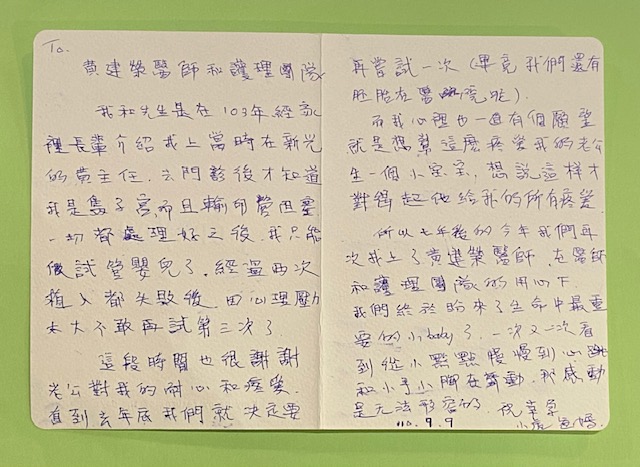 To.
黃建榮醫師和護理團隊
我和先生是在103年經家
裡長輩介紹找上當時在新光
的黃主任.去門診後才知道
我是隻子宮而且輸卵管阻塞
一切都處理好之後.我只能
做試管嬰兒了.經過兩次
植入都失敗後 因心理壓力
太大不敢再試第三次了
這段時間也很謝謝
老公對我的耐心和疼愛
直到去年底我們就決定要
再嘗試一次(畢竟我們還有
胚胎在醫院呢).
而我心裡也一直有個願望
就是想幫這麼疼愛我的老公
生一個小寶寶,想說這樣才
對得起他給我的所有疼愛
所以七年後的今年我們再
次找上了黃建榮醫師.在醫師
和護理團隊的用心下
我們終於盼來了生命中最重
要的小baby了.一次又一次看
到從小點點慢慢到心跳
和小手小腳在擺動.那感動
是無法形容的.
110.9.9